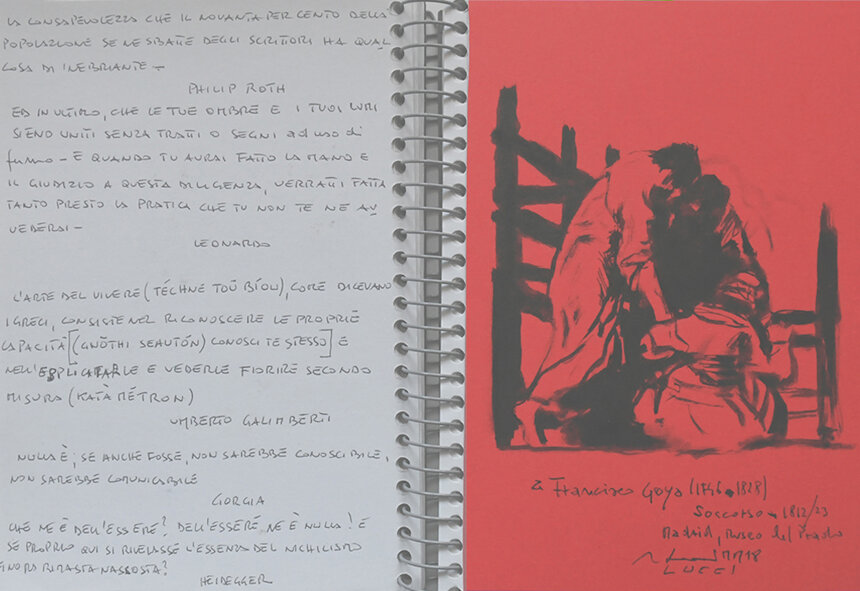 LA CONSAPEVOLEZZA CHE IL NOVANTA PER CENTO DELLA
POPOLAZIONE SE NE SBATTE DEGLI SCRITTORI HA QUAL
COSA DI INEBRIANTE –
PHILIP ROTH
ED IN ULTIMO, CHE LE TUE OMBRE E I TUOI LUMI
SIENO UNITI SENZA TRATTI O SEGNI ad uso di
fummo – E QUANDO TU AURAI FATTO LA MANO E
IL GIUDIZIO A QUESTA DILIGENZA, VERRATTI FATTA
TANTO PRESTO LA PRATICA CHE TU NON TE NE AV
VEDERAI –
LEONARDO
L'ARTE DEL VIVERE (TÉCHNE TOÛ BÍOU), COME DICEVANO
I GRECI, CONSISTE NEL RICONOSCERE LE PROPRIE
CAPACITÀ [(GNÔTHI SEAUTÓN) CONOSCI TE STESSO] E
NELL'ESPLICITARLE E VEDERLE FIORIRE SECONDO
MISURA (KATÀ MÉTRON)
UMBERTO GALIMBERTI
NULLA È; SE ANCHE FOSSE, NON SAREBBE CONOSCIBILE,
NON SAREBBE COMUNICABILE
GIORGIA
CHE NE È DELL'ESSERE? DELL'ESSERE NE È NULLA! E
SE PROPRIO QUI SI RIVELASSE L'ESSENZA DEL NICHILISMO
FINORA RIMASTA NASCOSTA?
HEIDEGGER
a Francisco Goya (1746-1828)
Soccorso 1812/23
Madrid, Museo del Prado
LUCCI